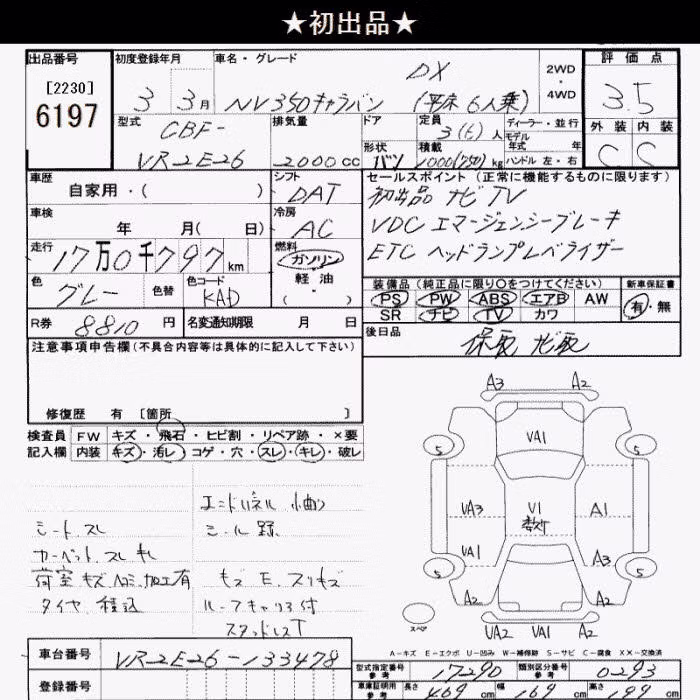 ★初出品★
出品番号
[2230]
6197
初度登録年月
3 3月
車名・グレード
DX
NV350キャラバン (平床 6人乗)
2WD
・
4WD
評価点
3.5
外装 内装
C C
型式
CBF-
VR2E26
排気量
2000cc
ドア
形状
バン
定員
3(6)人
積載
1000(750)kg
ディーラー・並行
モデル
年式 年
ハンドル 左・右
車歴
自家用・( )
シフト
DAT
セールスポイント (正常に機能するものに限ります)
初出品 ナビ TV
VDC エマージェンシーブレーキ
ETC ヘッドランプレベライザー
車検
年 月( 日)
冷房
AC
走行
17万0千797km
燃料
ガソリン
軽油
・( )
色
グレー
色替
色コード
KAD
装備品 (純正品に限り○をつけてください)
PS PW ABS エアB AW
SR ナビ TV カワ
新車保証書
有・無
R券
8810円
名変通知期限 月 日
後日品
保取 ナビ取
注意事項申告欄 (不具合内容等は具体的に記入して下さい)
修復歴 有 [箇所 ]
検査員
記入欄
FW キズ・飛石・ヒビ割・リペア跡・×要
内装 キズ・汚レ・コゲ・穴・スレ・キレ・破レ
シート、スレ
カーペット、スレ キレ
荷室 キズ ヘコミ 加工有
タイヤ 積込
エンドパネル 小曲り
シール 錆
キズ E、スリキズ
ルーフキャリア付
スタッドレスT
A3 A2
5 5
VA1
VA3 V1 A1
VA1
A3
5 5
A2 A2
VA2 VA1 A2
スペア
A-キズ E-エクボ U-凹み W-補修跡 S-サビ C-腐食 X X-交換済
車台番号
VR2E26-133478
登録番号
型式指定番号
参考
17290
類別区分番号
参考
0293
車庫証明用
参考
長さ
469cm
幅
169cm
高さ
199cm